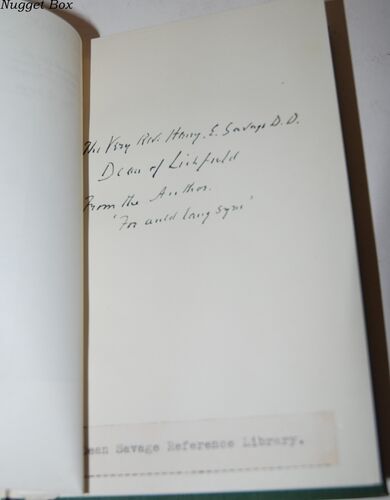 Nugget Box
The Very Rev. Henry. E. Savage D.D.
Dean of Lichfield
From the Author.
'For auld lang syne'
Dean Savage Reference Library.